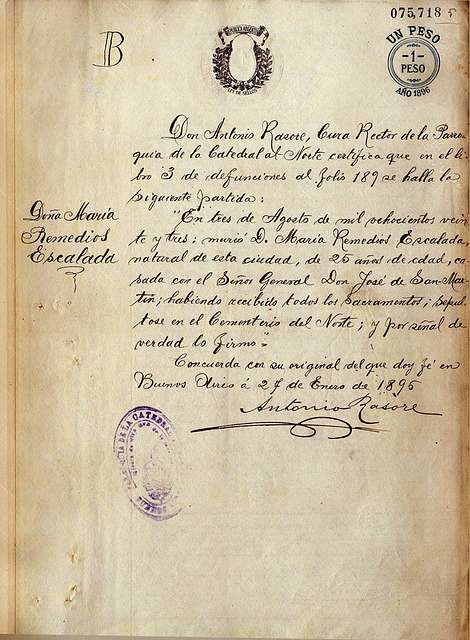 075,718
B
UN PESO
-1-
PESO
AÑO 1896
Don Antonio Rasore, Cura Rector de la Parro-
quia de la Catedral al Norte certifica que en el li-
bro 3 de defunciones al folio 189 se halla la
siguiente partida:
Doña María
Remedios
Escalada
"En tres de Agosto de mil ochocientos vein-
te y tres; murió D. María Remedios Escalada,
natural de esta ciudad, de 25 años de edad, ca-
sada con el Señor General Don José de San-Mar-
tin; habiendo recibido todos los Sacramentos; sepul-
tose en el Cementerio del Norte; y por señal de
verdad lo firmo"=
Concuerda con su original del que doy fé en
Buenos Aires á 27 de Enero de 1896
Antonio Rasore
DE LA CATEDRAL